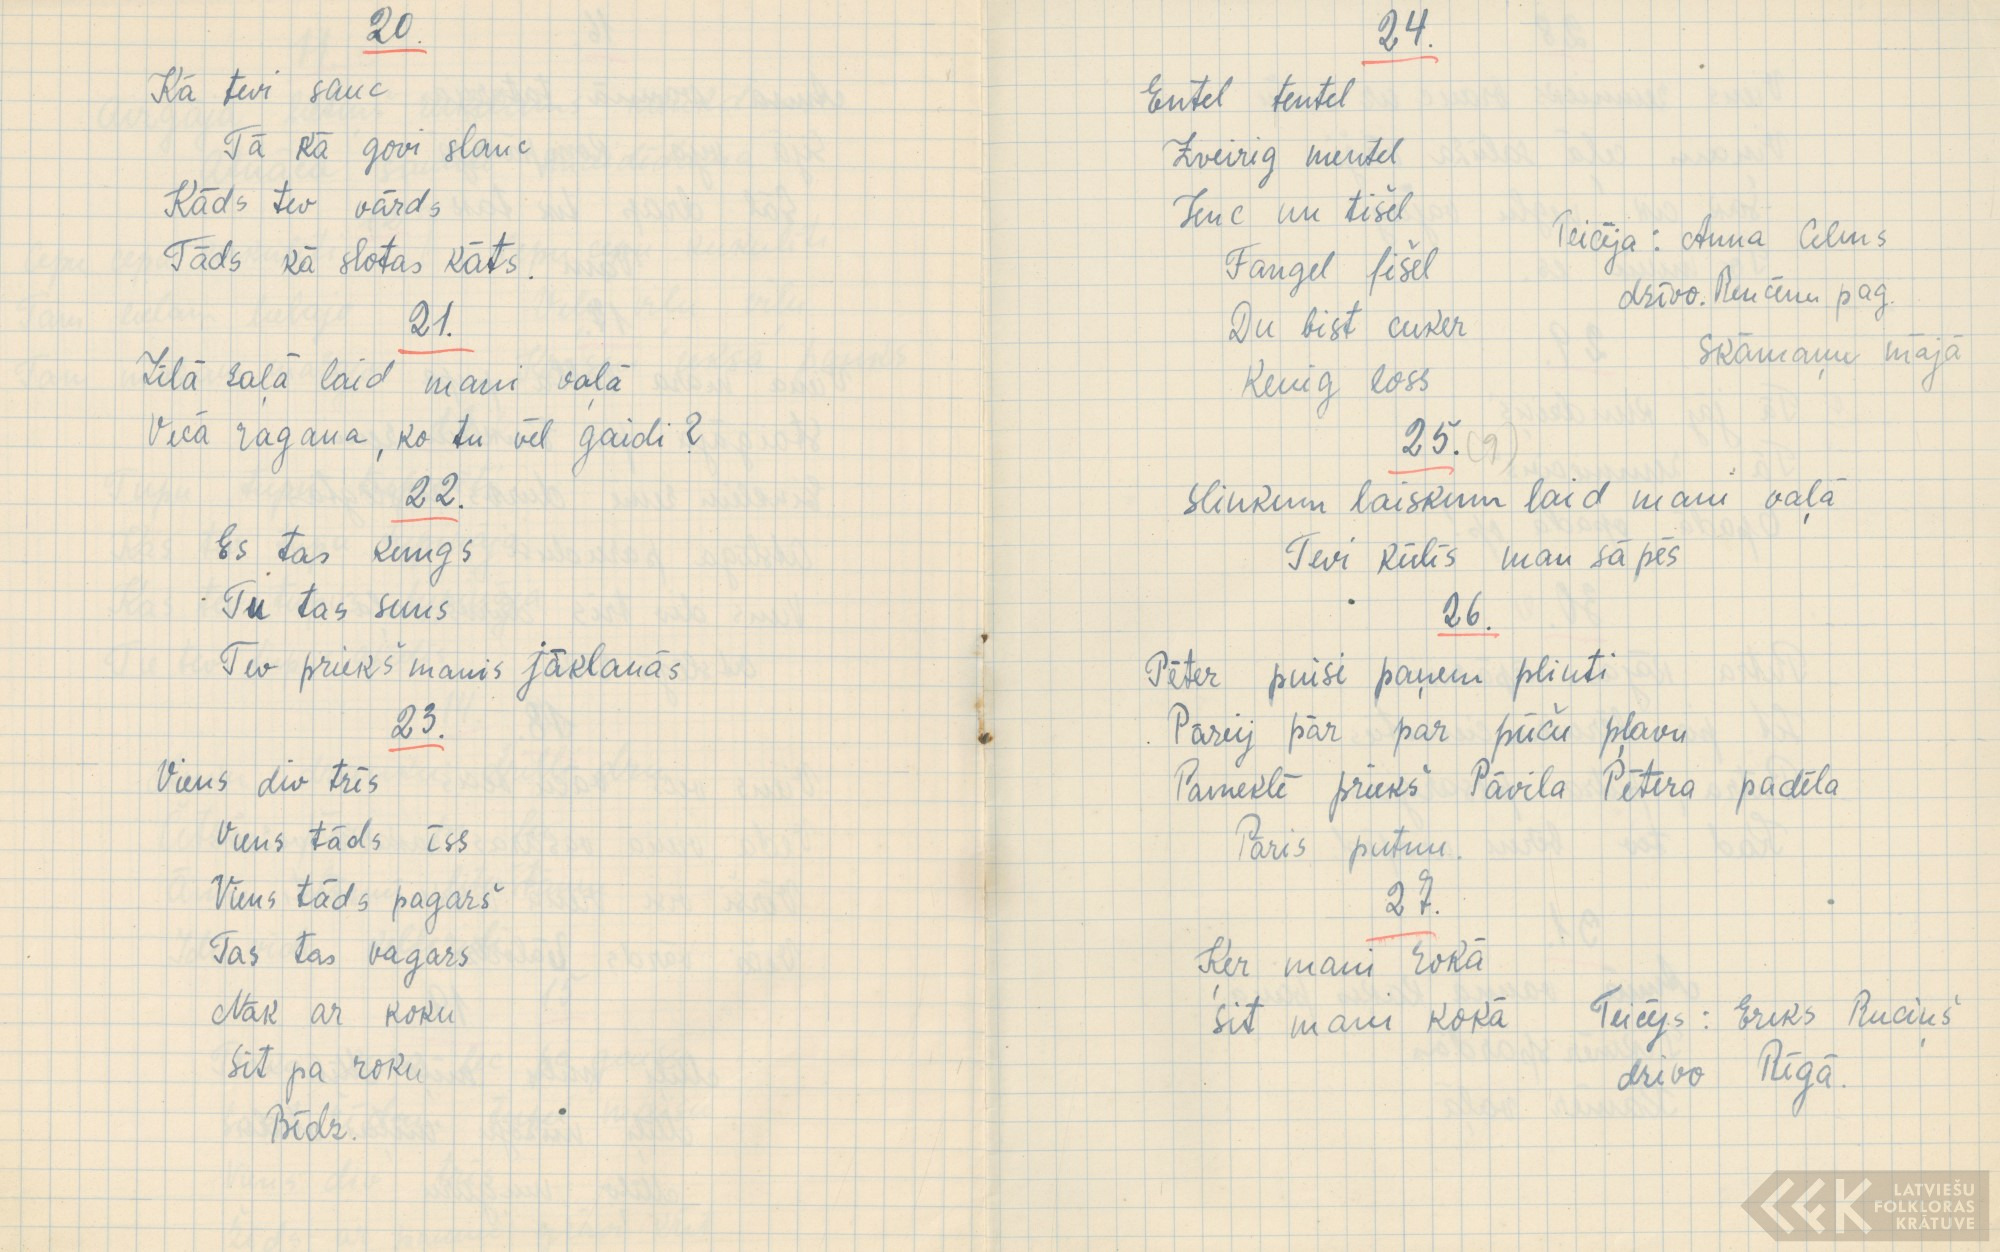 20.
Kā tevi sauc
Tā kā govi slauc
Kāds tev vārds
Tāds kā slotas kāts.
21.
Zīlā zaļā laid mani vaļā
Vecā ragana, ko tu vēl gaidi?
22.
Es tas kungs
Tu tas suns
Tev priekš manis jāklanās
23.
Viens div trīs
Viens tāds īss
Viens tāds pagarš
Tas tas vagars
Nāk ar koku
Sit pa roku
Bīdz.
24.
Entel tentel
Zveirig mentel
Zenc un tišel
Fangel fišel
Du bist cuker
Kenig loss
Teicēja: Anna Celms
dzīvo. Rencēnu pag.
Skāmaņu mājā
25. (9)
Slinkum laiskum laid mani vaļā
Tevi kūlīs man sāpēs
26.
Pēter puisi paņem plinti
Pāreij pār par pūču pļavu
Pameklē priekš Pāvila Pētera padēla
Pāris putnu.
27.
Ķer mani rokā
Sit mani kokā
Teicējs: Eriks Ruciņš
dzīvo Rīgā.
LATVIEŠU
FOLKLORAS
KRĀTUVE